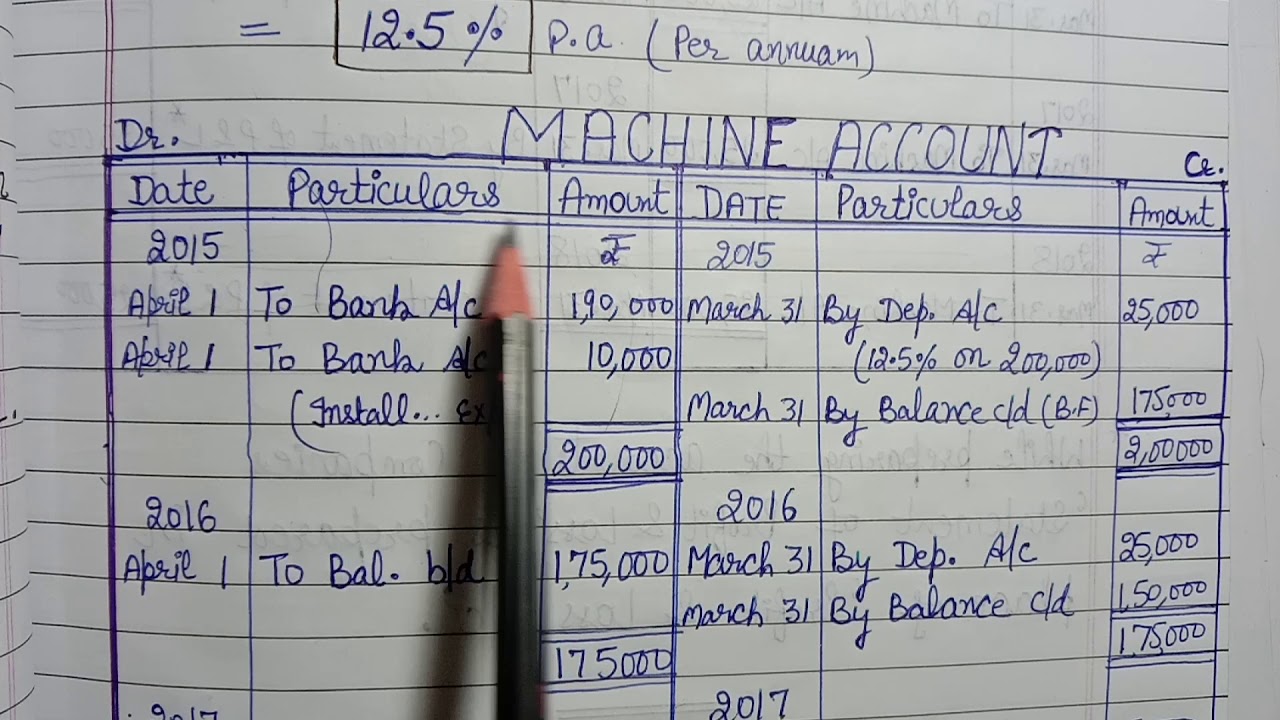 = 12.5% P.a. (Per annuam)
Dr. MACHINE ACCOUNT Cr.
Date Particulars Amount DATE Particulars Amount
2015 ₹ 2015 ₹
April 1 To Bank A/c 1,90,000 March 31 By Dep. A/c 25,000
April 1 To Bank A/c 10,000 (12.5% on 200,000)
(Install... Ex March 31 By Balance c/d (B.F) 175,000
200,000 2,00000
2016 2016
April 1 To Bal. b/d 1,75,000 March 31 By Dep. A/c 25,000
March 31 By Balance c/d 1,50,000
175000 1,75,000
2017 2017